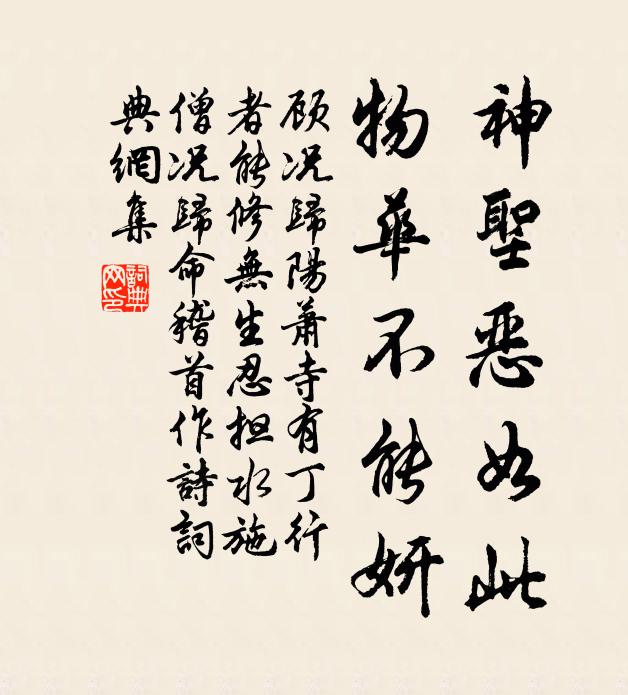 神聖惡如此
物華不能妍
顾况歸陽蕭寺有丁行
者能修無生忍担水施
僧况歸命稽首作詩詞
典網集
詞典
网印